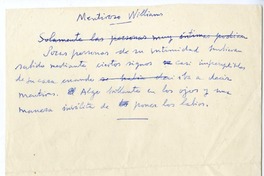 Mentiroso Williams
Solamente las personas muy íntimas podían
personas de su intimidad
sabido mediante ciertos signos casi imperceptibles
de su casa cuando se había iba a decir
mentiras. Algo brillante en los ojos y una
manera insólita de poner los labios.